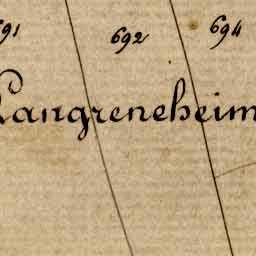 691 692 694
Langreneheim